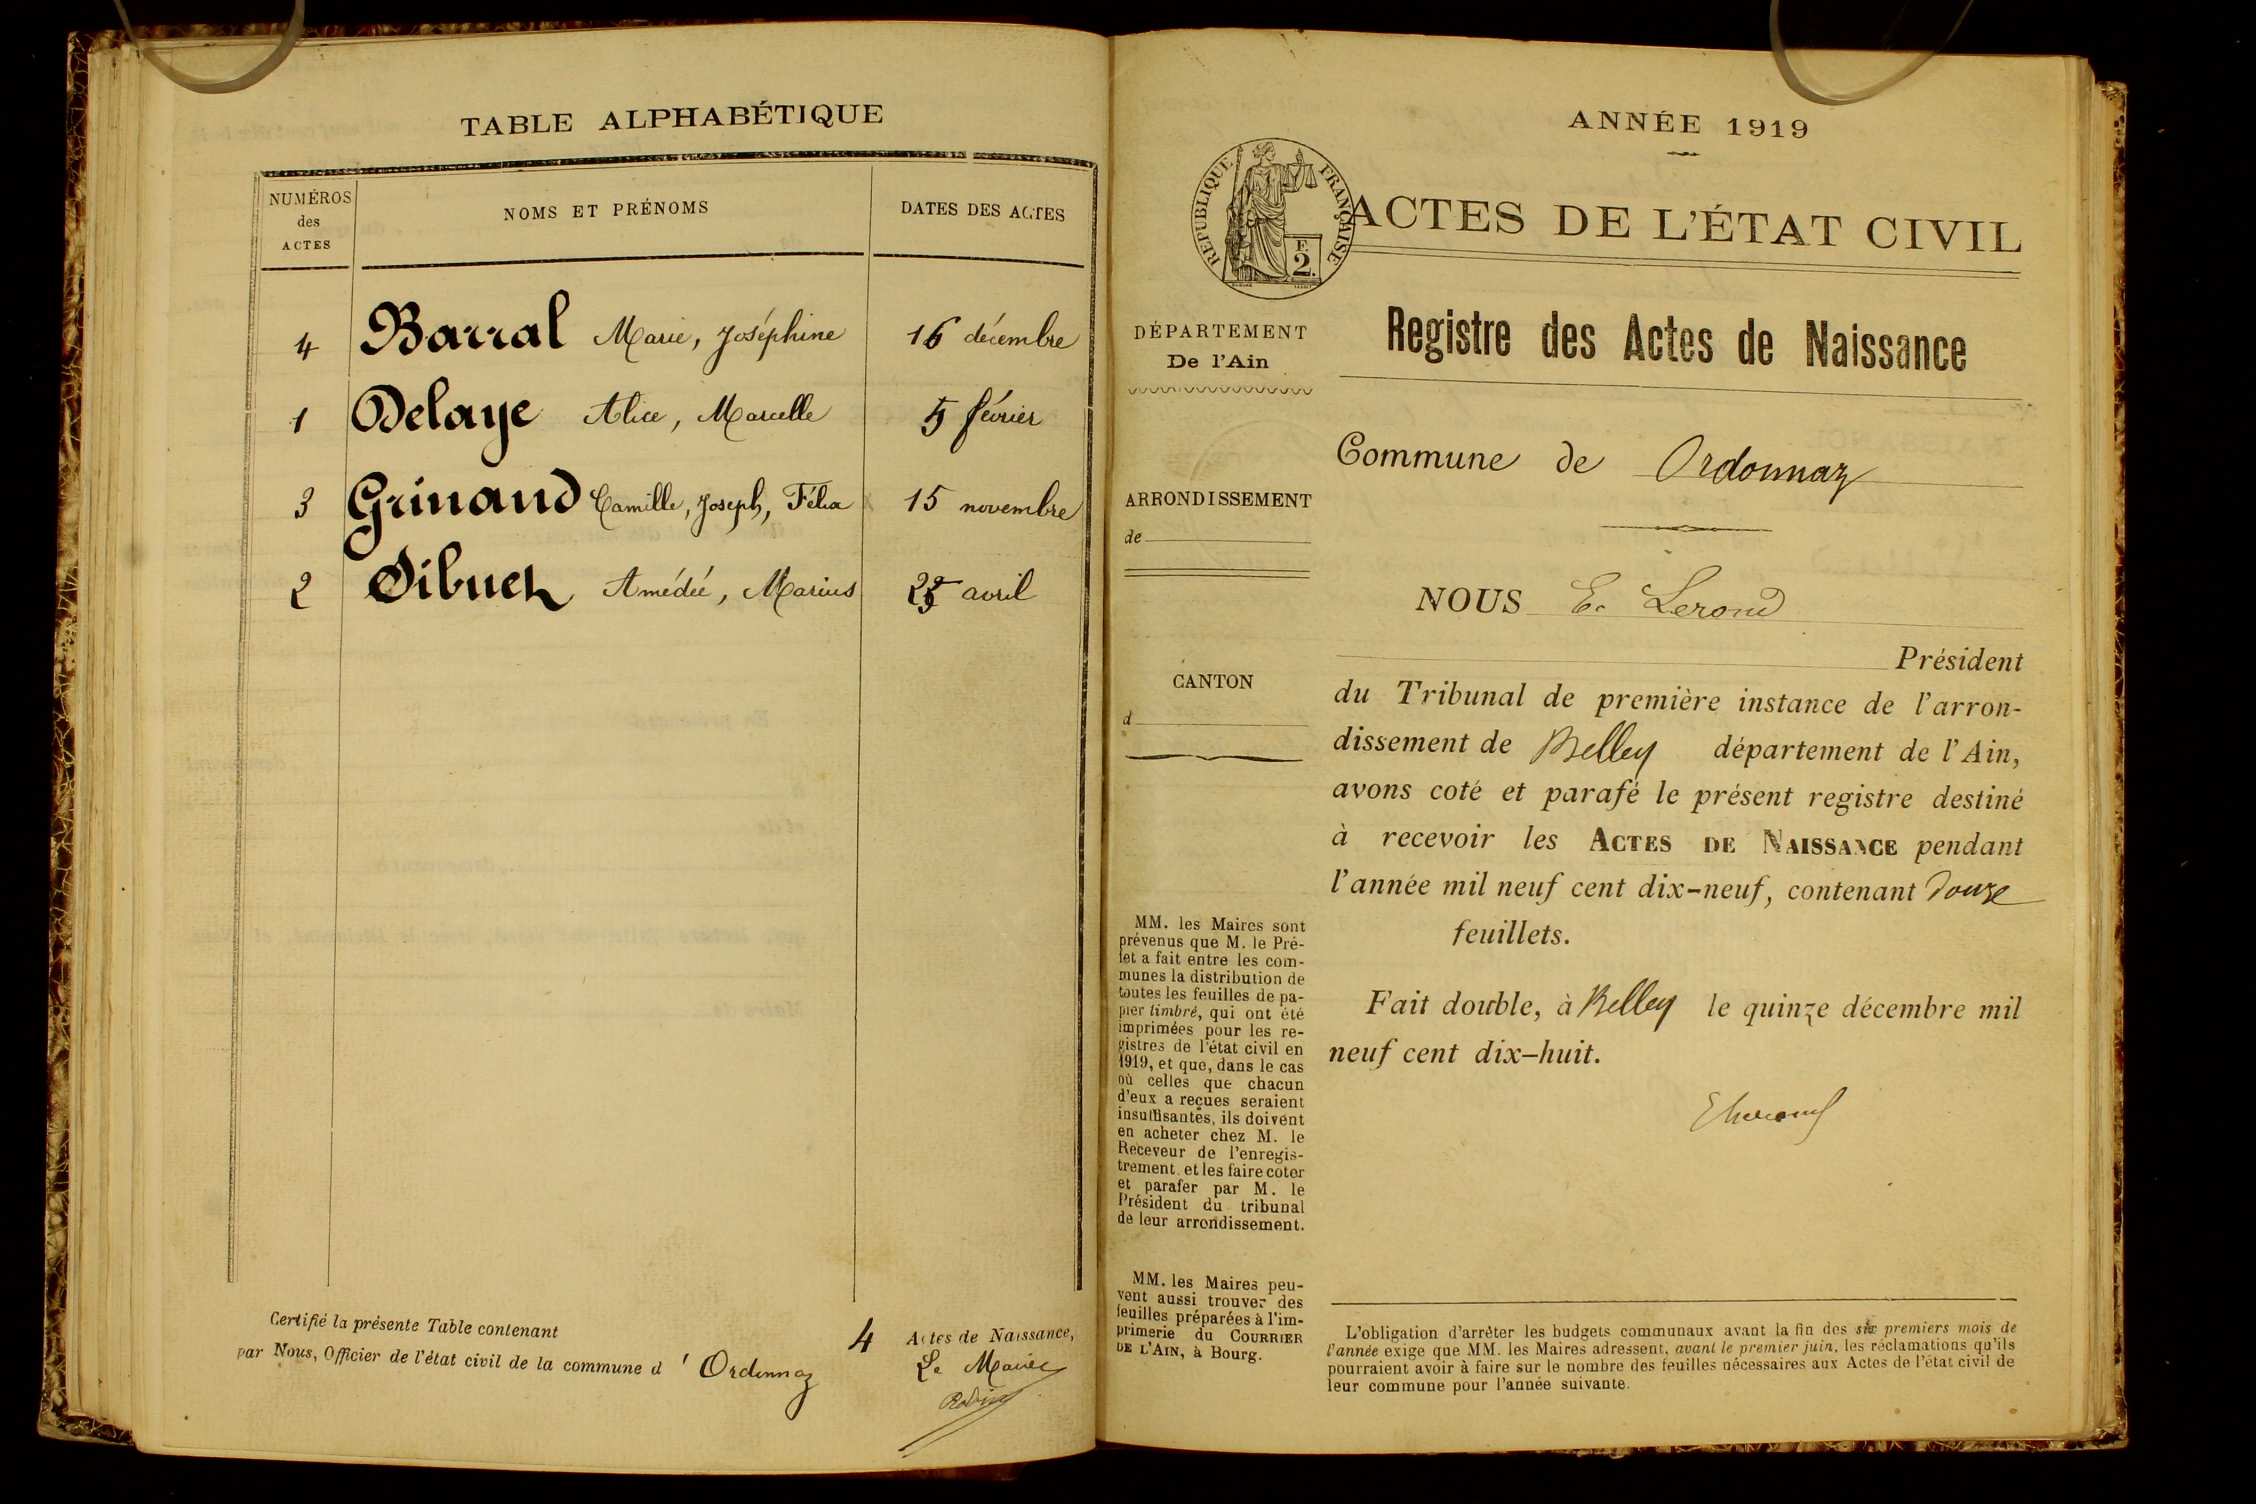 TABLE ALPHABÉTIQUE
NUMÉROS des ACTES
NOMS ET PRÉNOMS
DATES DES ACTES
4 Barral Marie, Joséphine 16 décembre
1 Delaye Alice, Marcelle 5 février
3 Grinand Camille, Joseph, Félix 15 novembre
2 Sibuet Amédée, Marius avril
Certifié la présente Table contenant 4 Actes de Naissance,
par Nous, Officier de l'état civil de la commune d'Ordonnaz
Le Maire
ANNÉE 1919
RÉPUBLIQUE FRANÇAISE
F. 2.
ACTES DE L'ÉTAT CIVIL
DÉPARTEMENT
De l'Ain
Registre des Actes de Naissance
Commune de Ordonnaz
ARRONDISSEMENT
de
CANTON
d
NOUS E. Lerond
Président
du Tribunal de première instance de l'arron-
dissement de Belley département de l'Ain,
avons coté et parafé le présent registre destiné
à recevoir les ACTES DE NAISSANCE pendant
l'année mil neuf cent dix-neuf, contenant douze
feuillets.
Fait double, à Belley le quinze décembre mil
neuf cent dix-huit.
MM. les Maires sont
prévenus que M. le Pré-
fet a fait entre les com-
munes la distribution de
toutes les feuilles de pa-
pier timbré, qui ont été
imprimées pour les re-
gistres de l'état civil en
1919, et que, dans le cas
où celles que chacun
d'eux a reçues seraient
insuffisantes, ils doivent
en acheter chez M. le
Receveur de l'enregis-
trement et les faire coter
et parafer par M. le
Président du tribunal
de leur arrondissement.
MM. les Maires peu-
vent aussi trouver des
feuilles préparées à l'im-
primerie du COURRIER
DE L'AIN, à Bourg.
L'obligation d'arrêter les budgets communaux avant la fin des six premiers mois de
l'année exige que MM. les Maires adressent, avant le premier juin, les réclamations qu'ils
pourraient avoir à faire sur le nombre des feuilles nécessaires aux Actes de l'état civil de
leur commune pour l'année suivante.